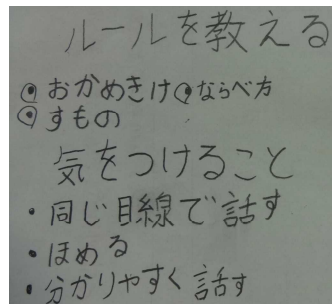 ルールを教える
おかめきけ ならべ方
すもの
気をつけること
・同じ目線で話す
・ほめる
・分かりやすく話す